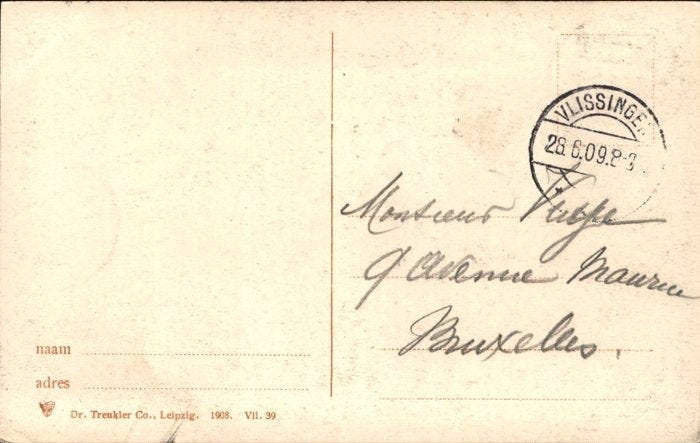 VLISSINGEN
28.6.09.8-9
Monsieur
9 Avenue Maurice
Bruxelles.
naam
adres
Dr. Trenkler Co., Leipzig. 1908. Vll. 39